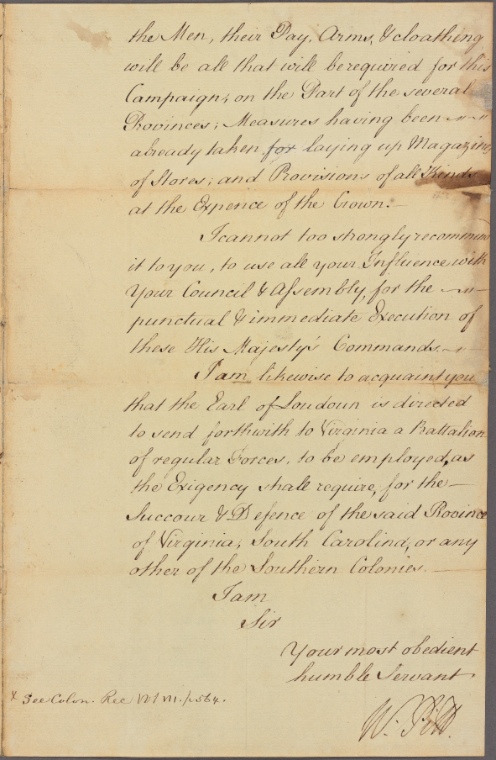 the Men, their Pay, Arms, & cloathing
will be all that will be required for this
Campaign, on the Part of the several
Provinces; Measures having been
already taken for laying up Magazines
of Stores, and Provisions of all Kinds
at the Expence of the Crown.
I cannot too strongly recommend
it to you, to use all your Influence with
Your Council & Assembly, for the
punctual & immediate Execution of
these His Majesty's Commands.
I am likewise to acquaint you
that the Earl of Loudoun is directed
to send forthwith to Virginia a Battalion
of regular Forces, to be employed, as
the Exigency shall require, for the
Succour & Defence of the said Province
of Virginia, South Carolina, or any
other of the Southern Colonies.
I am
Sir
Your most obedient
humble Servant
W. Pitt.
x See Colon. Rec Vol VII. p 564.